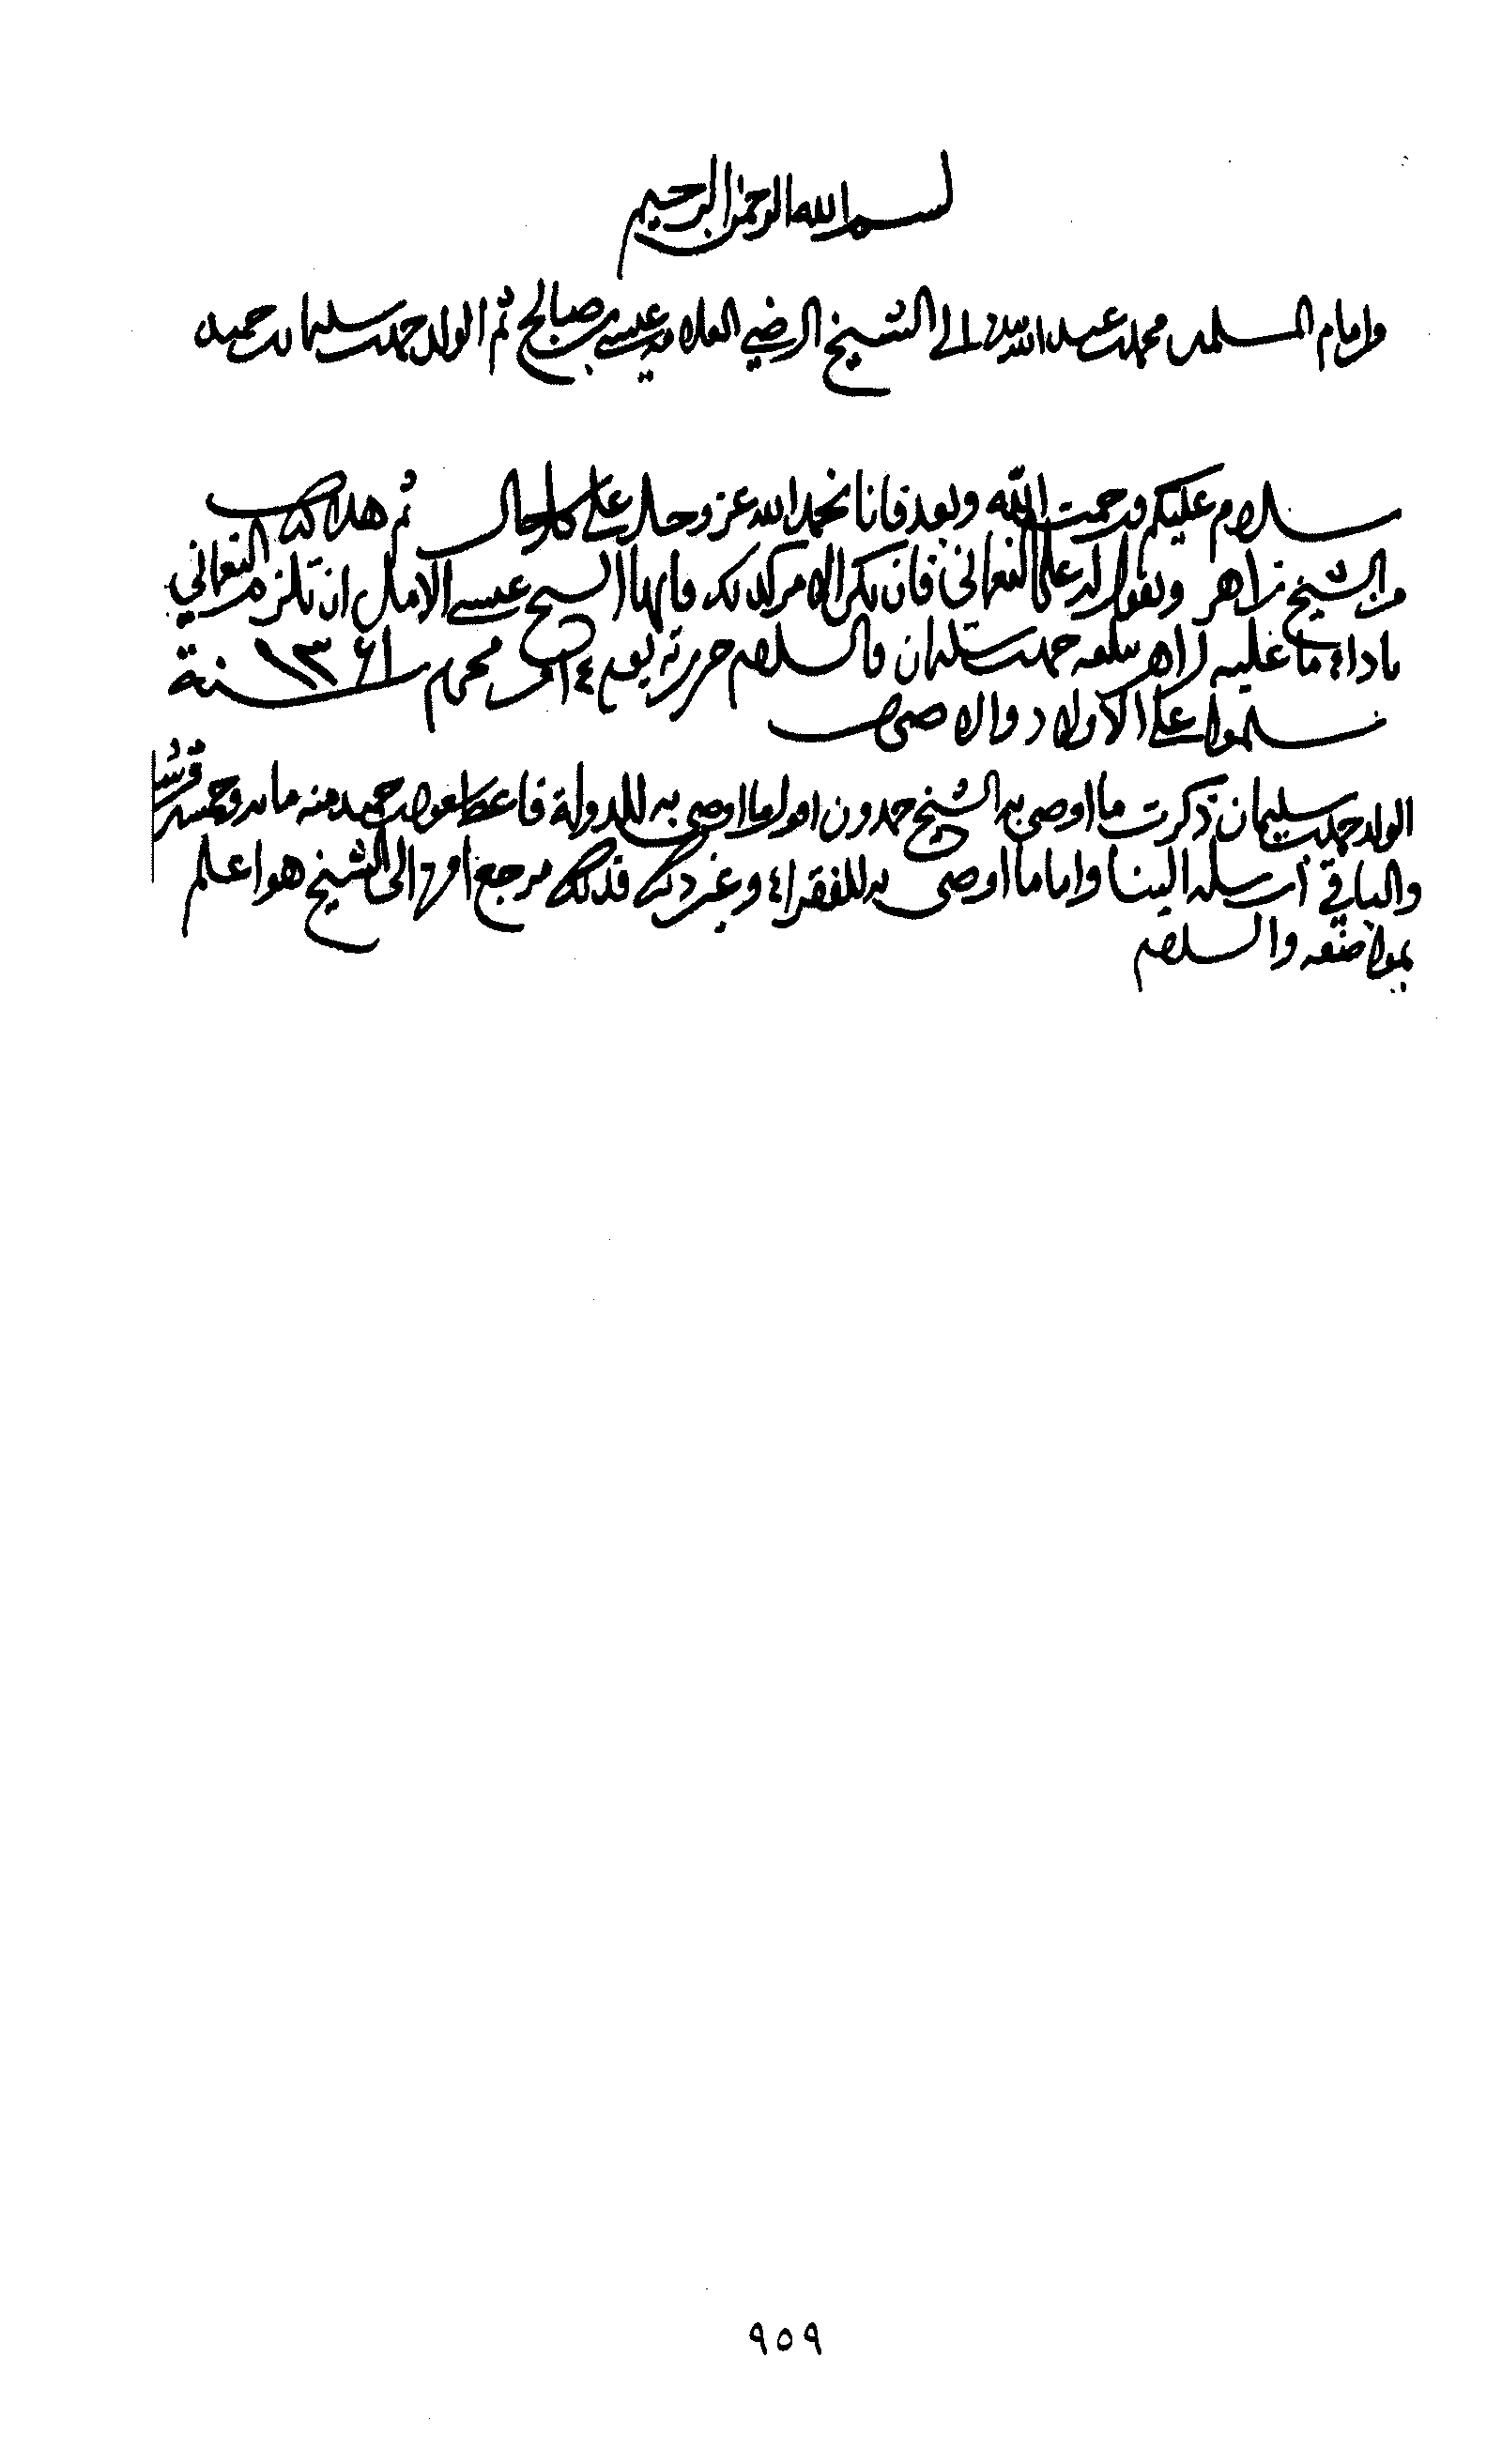 بسم الله الرحمن الرحيم
من إمام المسلمين محمد بن عبد الله إلى الشيخ الرضي العلامة عيسى بن صالح ثم الولد حمد بن سليمان بن حميد
سلام عليكم ورحمت الله وبعد فانا نحمد الله عز وجل على كل حال ثم هذا كتاب
من الشيخ زاهر ويقول له على النعماني فان يكن الامر كذلك فايها الشيخ عيسى الامل ان تلزم النعماني
باداء ما عليه لزاهر حمد بن سليمان والسلام حررته يوم ١٤ من محرم سنة ١٣٦١
سلموا على الاولاد والاصحاب
الولد حمد بن سليمان ذكرت ما اوصى به الشيخ حمدون اما ما اوصى به للدولة فاعط بن حميد منه مايه وخمسين قرشا
والباقي ارسله الينا واما ما اوصى به للفقراء وغير ذلك فذلك مرجع امره الى الشيخ هو اعلم
بمواضعه والسلام
٩٥٩